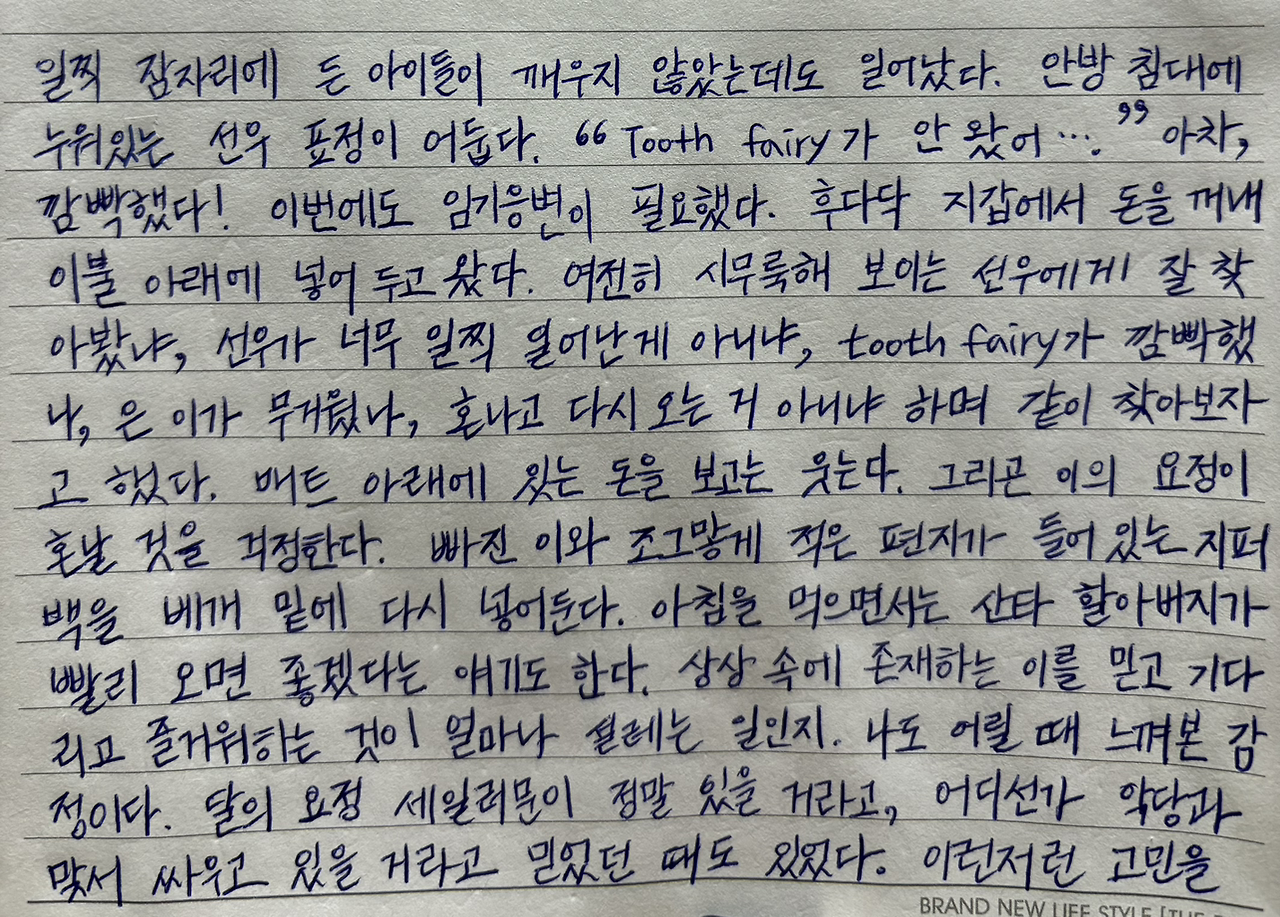 일찍 잠자리에 든 아이들이 깨우지 않았는데도 일어났다. 안방 침대에
누워있는 선우 표정이 어둡다. “Tooth fairy가 안 왔어….” 아차,
깜빡했다! 이번에도 임기응변이 필요했다. 후다닥 지갑에서 돈을 꺼내
이불 아래에 넣어 두고 왔다. 여전히 시무룩해 보이는 선우에게 잘 찾
아봤냐, 선우가 너무 일찍 일어난게 아니냐, tooth fairy가 깜빡했
나, 은 이가 무거웠나, 혼나고 다시 오는 거 아니냐 하며 같이 찾아보자
고 했다. 매트 아래에 있는 돈을 보고는 웃는다. 그리곤 이의 요정이
혼날 것을 걱정한다. 빠진 이와 조그맣게 적은 편지가 들어있는 지퍼
백을 베개 밑에 다시 넣어둔다. 아침을 먹으면서는 산타 할아버지가
빨리 오면 좋겠다는 얘기도 한다. 상상 속에 존재하는 이를 믿고 기다
리고 즐거워하는 것이 얼마나 설레는 일인지. 나도 어릴 때 느껴본 감
정이다. 달의 요정 세일러문이 정말 있을 거라고, 어디선가 악당과
맞서 싸우고 있을 거라고 믿었던 때도 있었다. 이런저런 고민을
BRAND NEW LIFE STYLE [THE